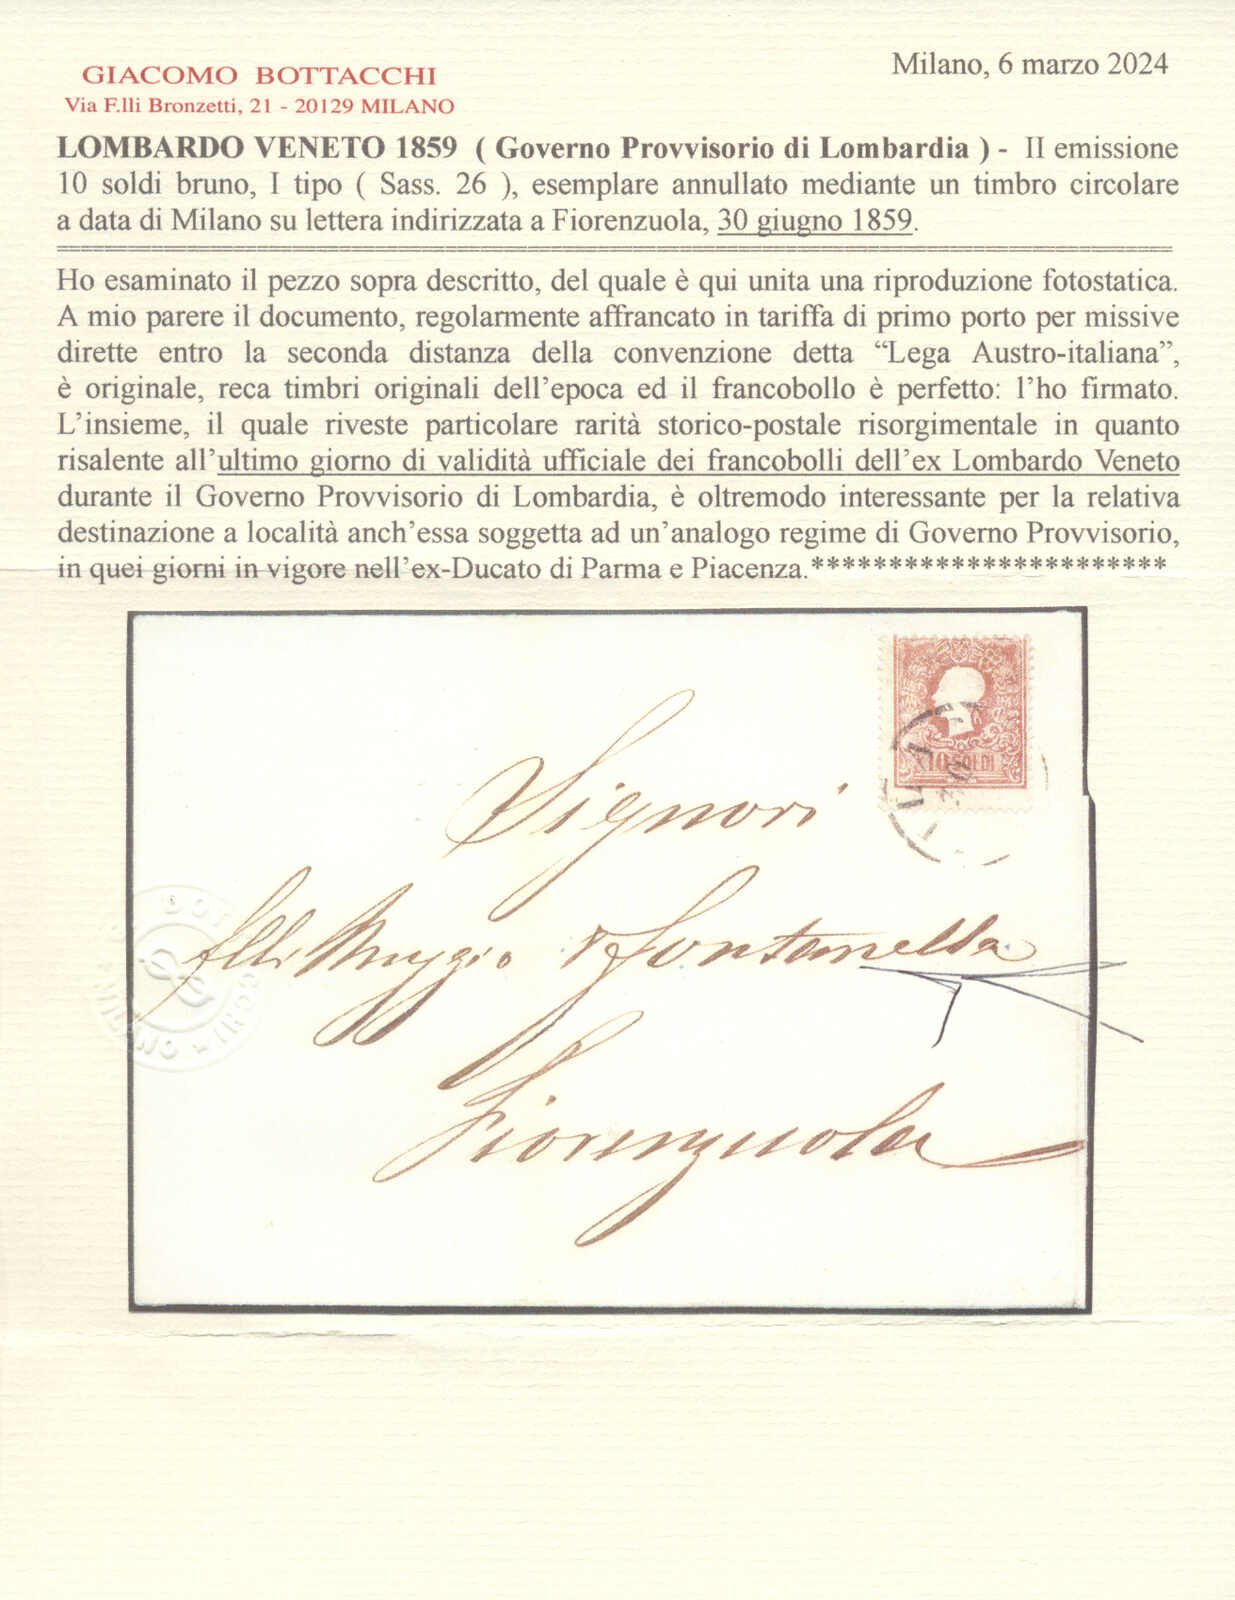 GIACOMO BOTTACCHI
Via F.lli Bronzetti, 21 - 20129 MILANO
Milano, 6 marzo 2024
LOMBARDO VENETO 1859 ( Governo Provvisorio di Lombardia ) - II emissione
10 soldi bruno, I tipo ( Sass. 26 ), esemplare annullato mediante un timbro circolare
a data di Milano su lettera indirizzata a Fiorenzuola, 30 giugno 1859.
Ho esaminato il pezzo sopra descritto, del quale è qui unita una riproduzione fotostatica.
A mio parere il documento, regolarmente affrancato in tariffa di primo porto per missive
dirette entro la seconda distanza della convenzione detta “Lega Austro-italiana”,
è originale, reca timbri originali dell’epoca ed il francobollo è perfetto: l’ho firmato.
L’insieme, il quale riveste particolare rarità storico-postale risorgimentale in quanto
risalente all’ultimo giorno di validità ufficiale dei francobolli dell’ex Lombardo Veneto
durante il Governo Provvisorio di Lombardia, è oltremodo interessante per la relativa
destinazione a località anch’essa soggetta ad un’analogo regime di Governo Provvisorio,
in quei giorni in vigore nell’ex-Ducato di Parma e Piacenza.***********************
10 SOLDI
Signori
flli Muggio & Fontanella
Fiorenzuola
BOTTACCHI
MILANO